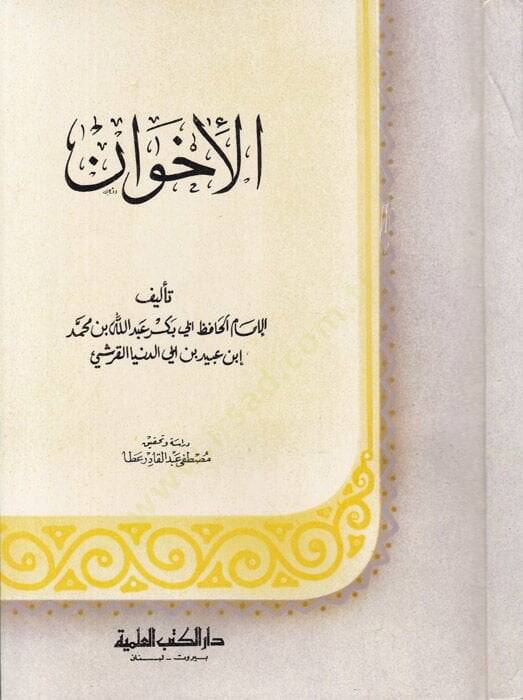 الأخوان
تأليف
الإمام الحافظ ابي بكر عبد الله بن محمد
ابن عبيد بن ابي الدنيا القرشي
دراسة وتحقيق
مصطفى عبد القادر عطا
دار الكتب العلمية
بيروت - لبنان